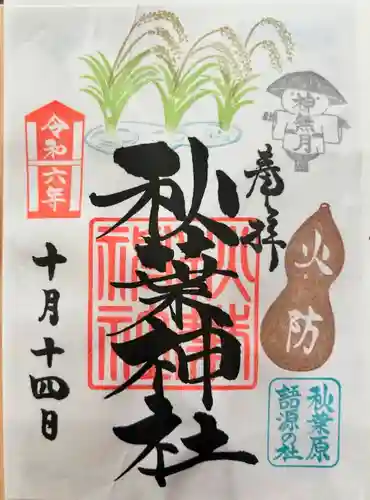 神無月
奉拝
火防
秋葉神社
秋葉神社
令和
六年
十月十四日
秋葉原
語源の社